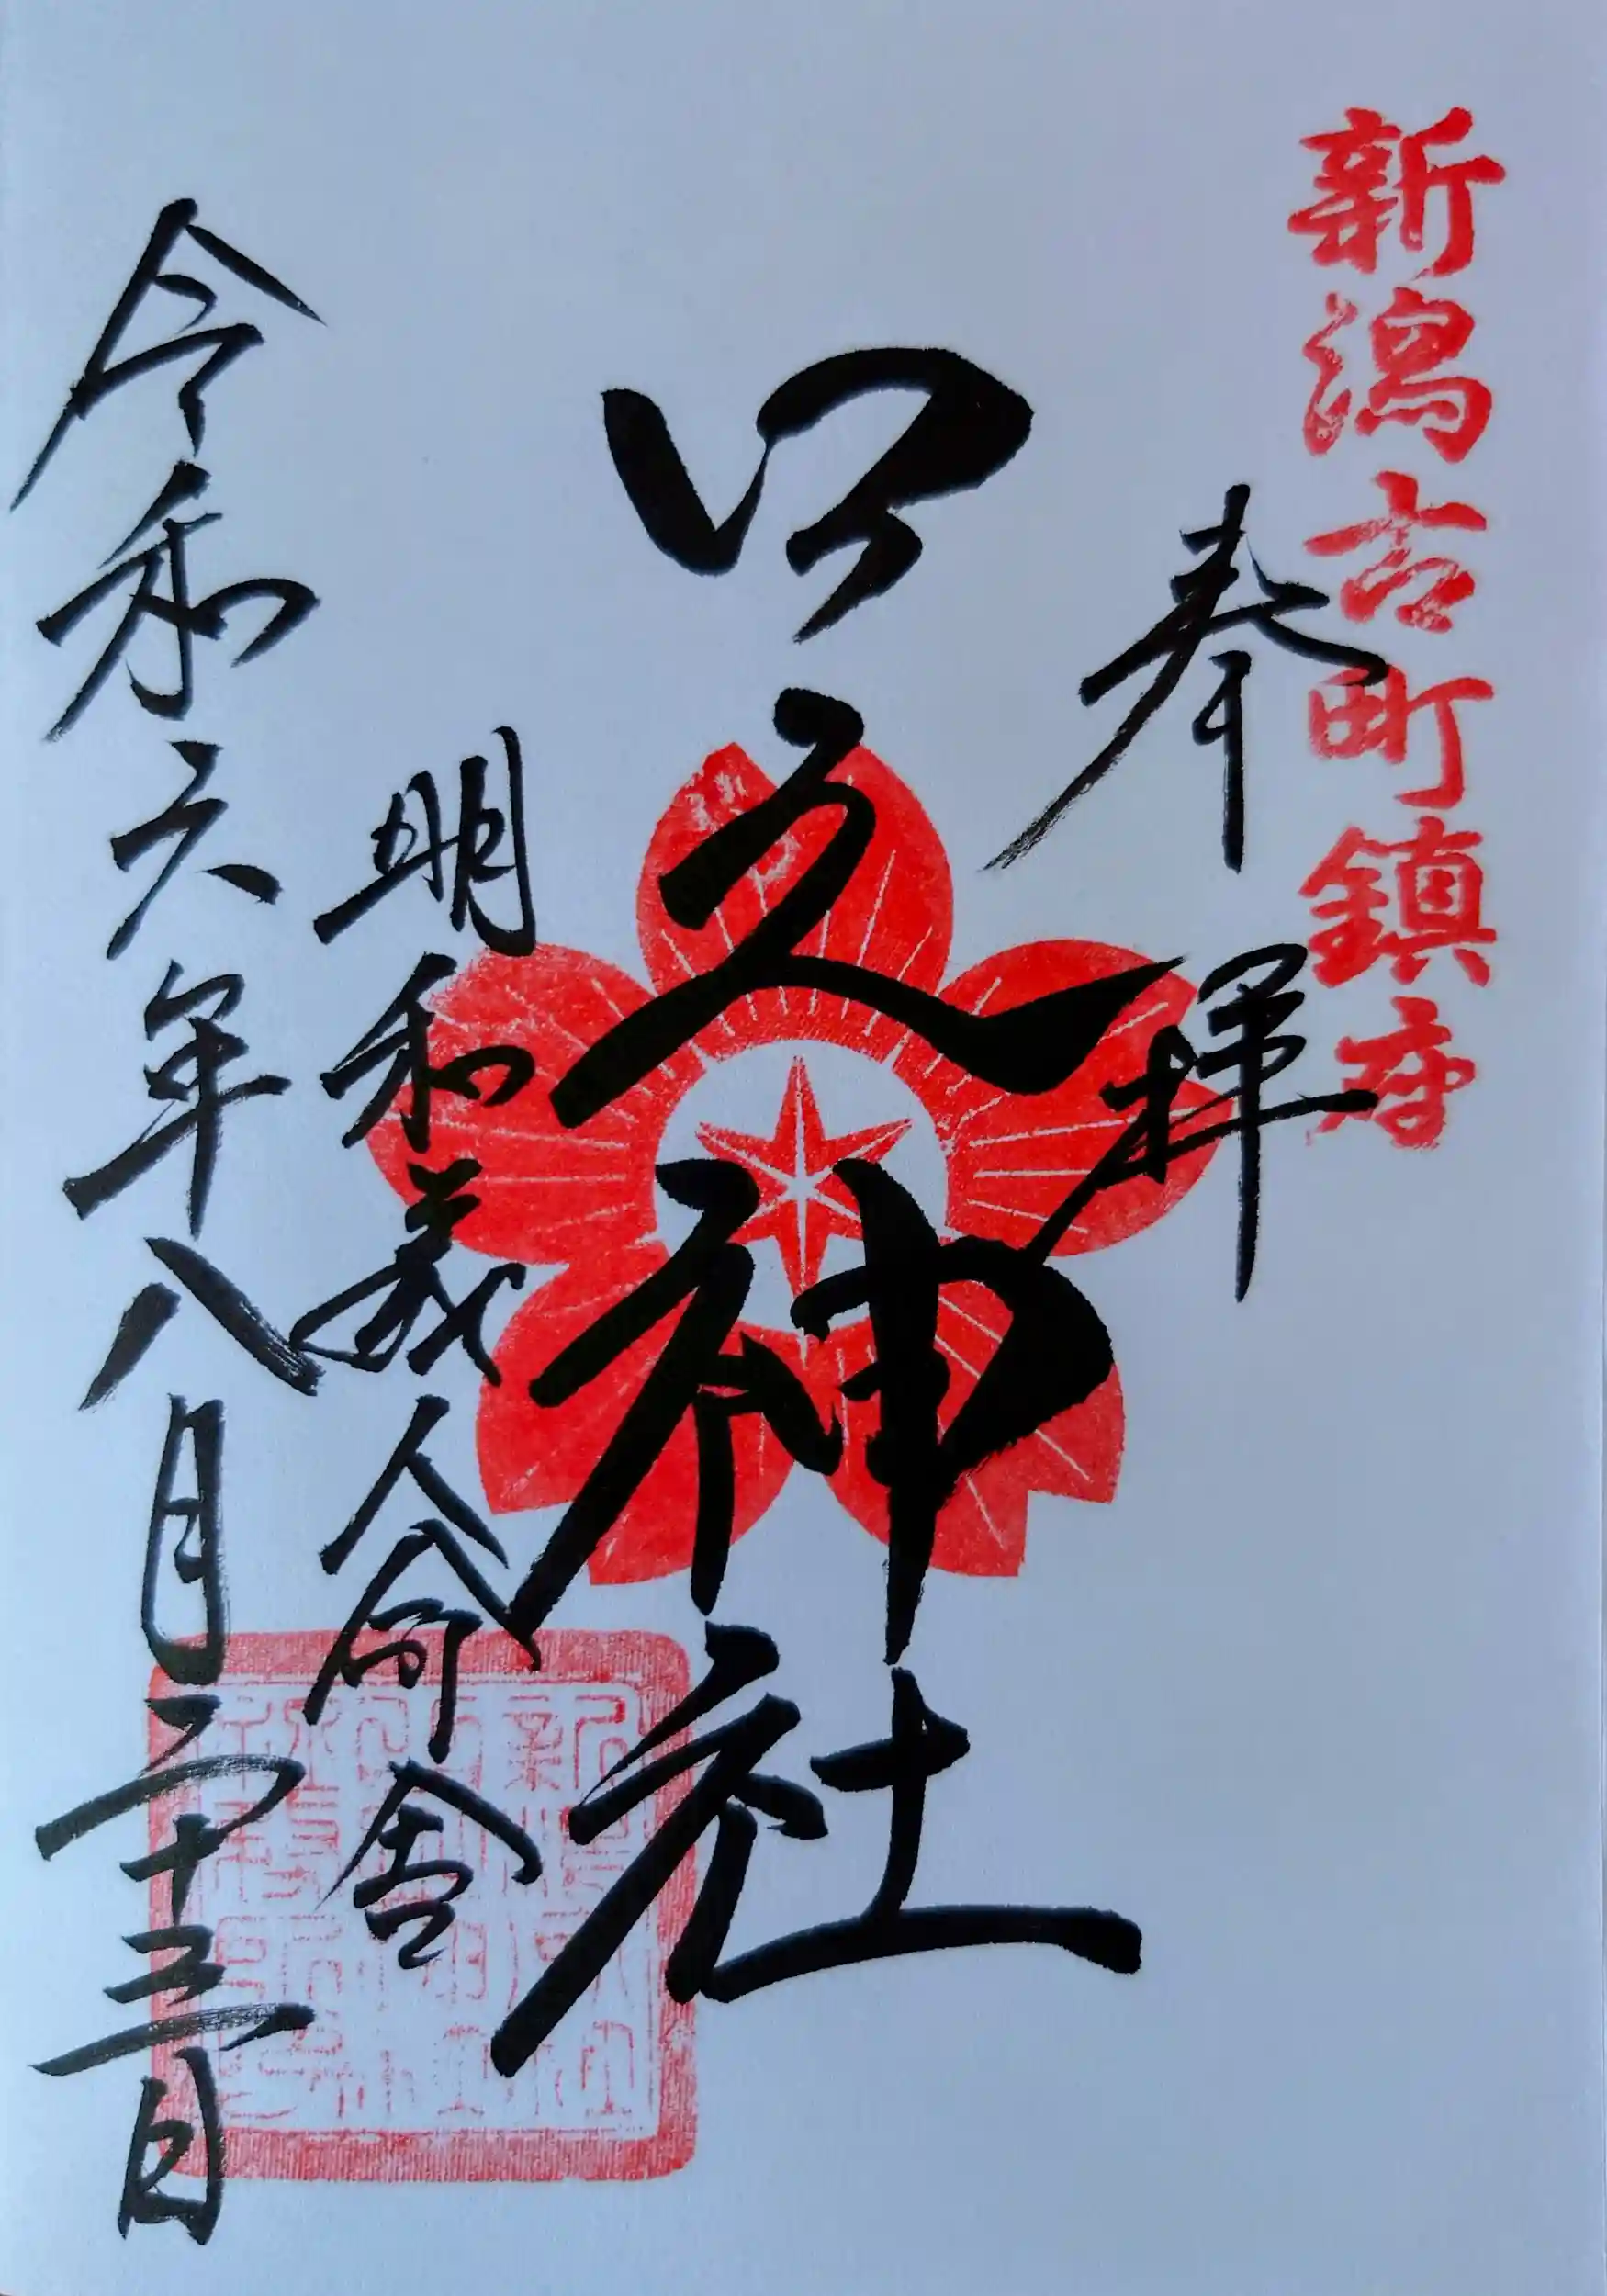 新潟古町鎮座
奉拝
口之神社
明和義人命舎
令和六年八月二十三日